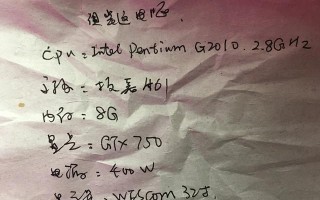 电脑
Cpu：Intel Pentium G2010. 2.8GHz
主板：技嘉H61
内存：8G
显卡：GTX 750
电源：400W
WESCOM 32寸